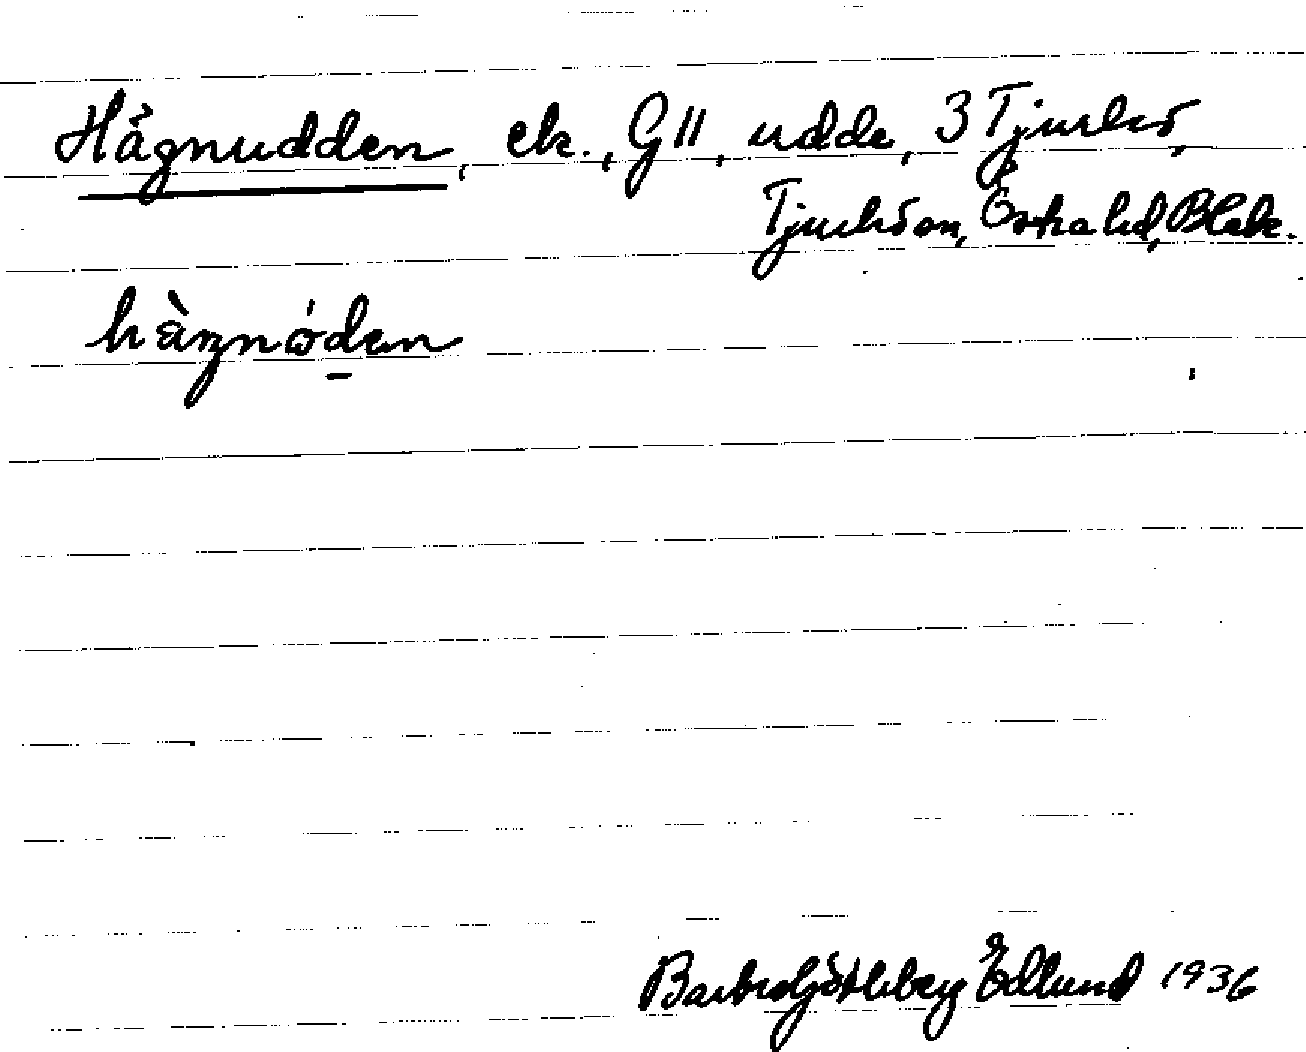 Hågnudden, ek., G11, udde, 3 Tjurkö,
Tjurkö sn, Östra hd, Blek.
Barbro Götleberg Edlund 1936